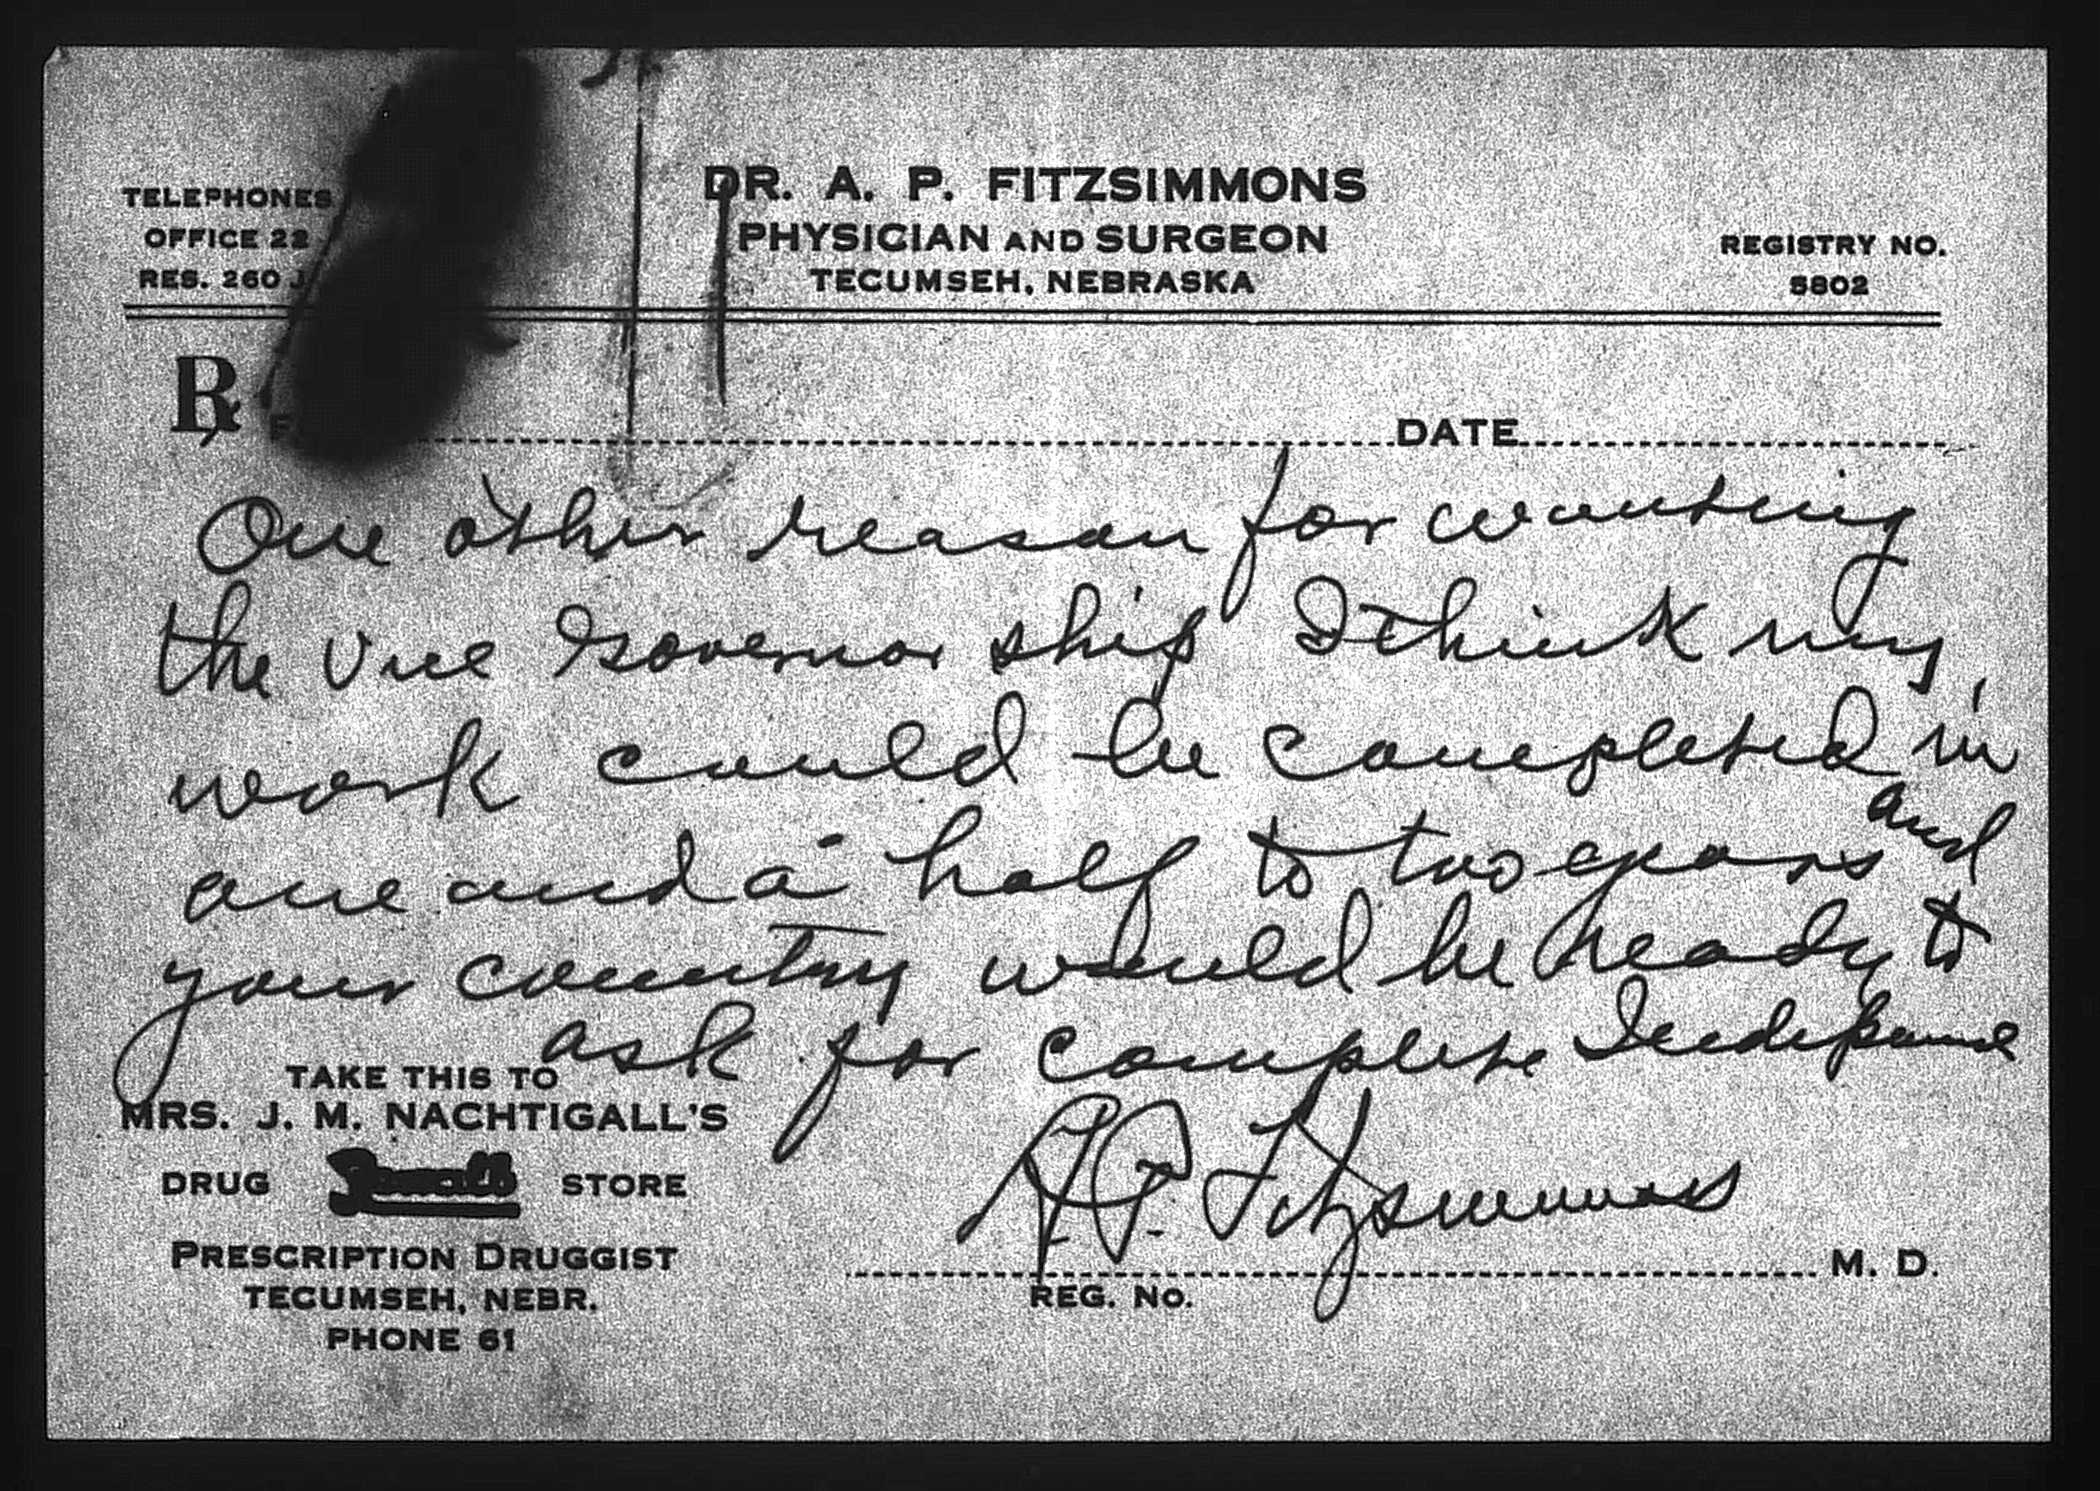 TELEPHONES
OFFICE 22
RES. 260 J
DR. A. P. FITZSIMMONS
PHYSICIAN AND SURGEON
TECUMSEH, NEBRASKA
REGISTRY NO.
5802
℞
DATE
One other reason for wanting
the Vice Governor ship I think my
work could be completed in
one and a half to two years and
your country would be ready to
ask for complete Independence
TAKE THIS TO
MRS. J. M. NACHTIGALL'S
DRUG STORE
PRESCRIPTION DRUGGIST
TECUMSEH, NEBR.
PHONE 61
A.P. Fitzsimmons
M. D.
REG. NO.